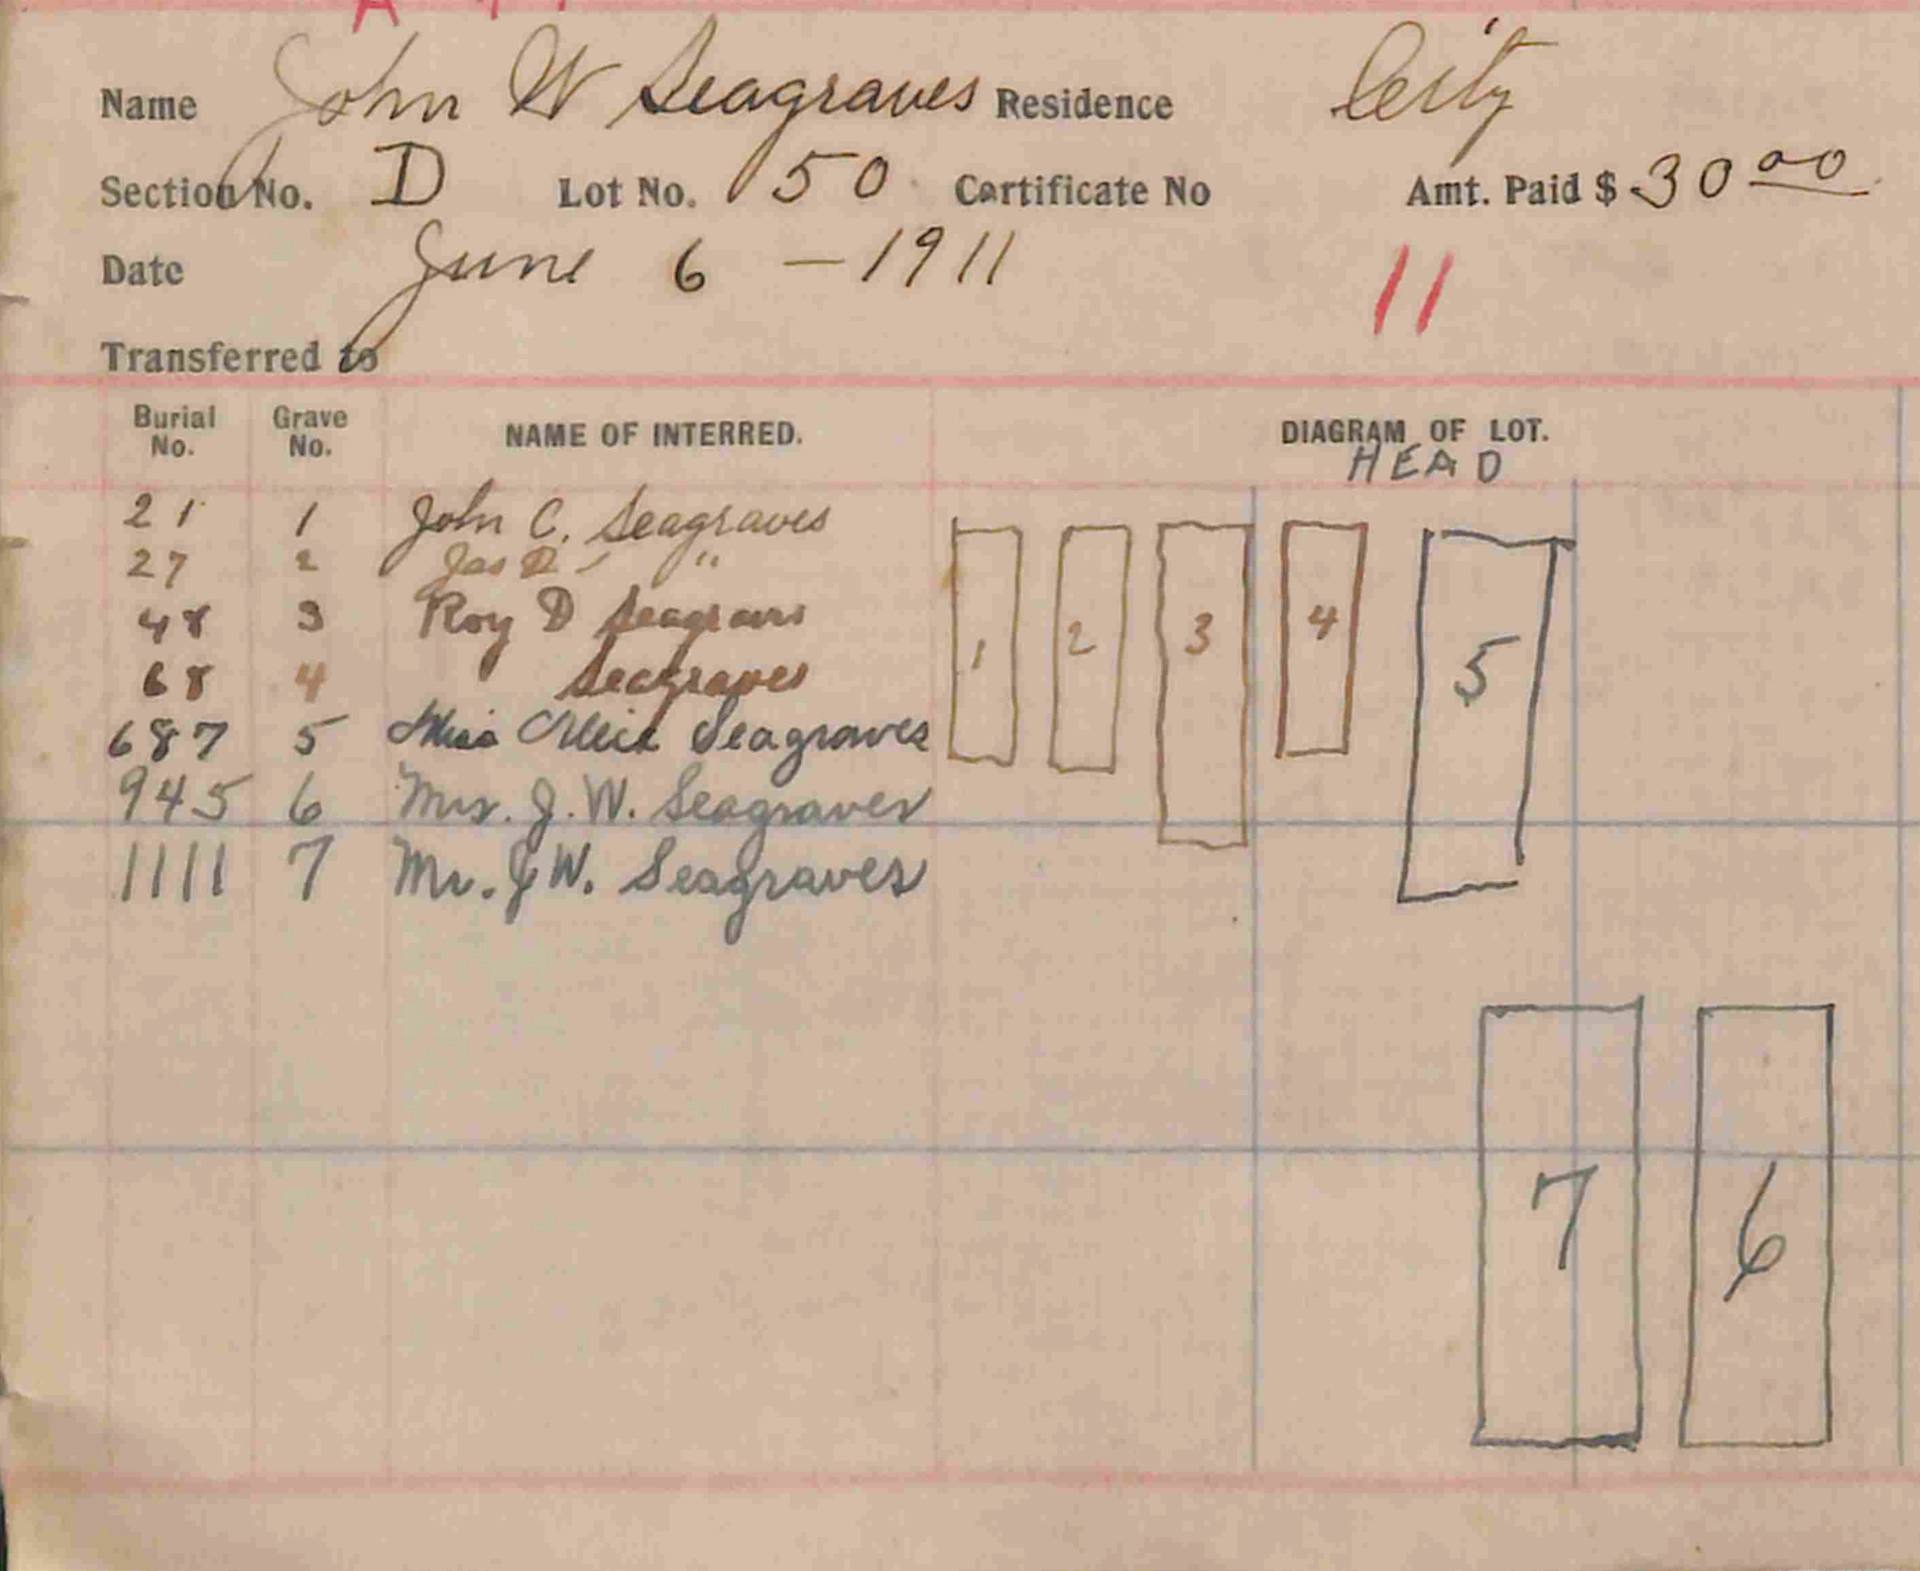 Name John W Seagraves Residence City
Section No. D Lot No. 50 Certificate No Amt. Paid $ 30 00
Date June 6 - 1911
11
Transferred to
Burial No. Grave No. NAME OF INTERRED. DIAGRAM OF LOT.
HEAD
21 1 John C. Seagraves
27 2 Jas "
48 3 Roy D Seagraves
68 4 Seagraves
687 5 Miss Seagraves
945 6 Mrs. J. W. Seagraves
1111 7 Mr. J W. Seagraves
1 2 3 4 5
7 6